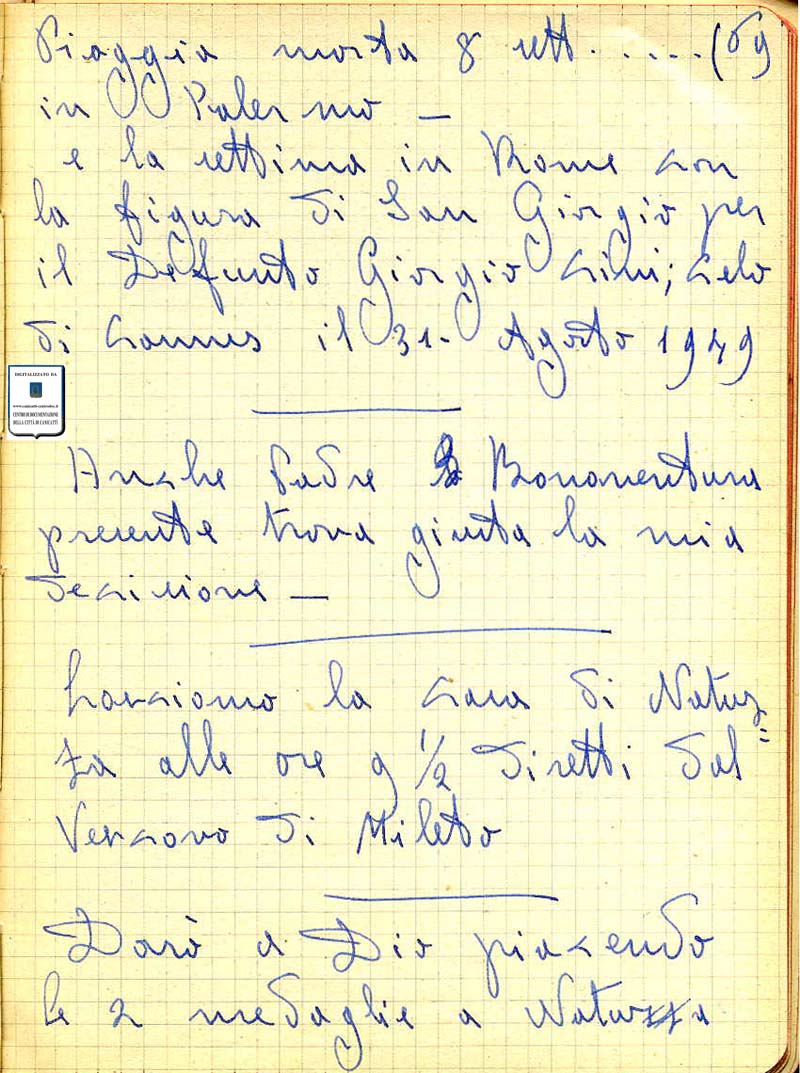 Piaggia morta 8 sett. . . . . (59
in Palermo —
e la settima in Rame con
la figura di San Giorgio per
il Defunto Giorgio Cini; cielo
di Cannes il 31- Agosto 1949
DIGITALIZZATO DA
CENTRO DI DOCUMENTAZIONE
DELLA CITTÀ DI CANICATTÌ
Anche Padre Bonaventura
presente trova giusta la mia
decisione —
Lasciamo la casa di Natuz=
za alle ore 9 1/2 diretti dal
Vescovo di Mileto
Darò a Dio piacendo
le 2 medaglie a Natuzza